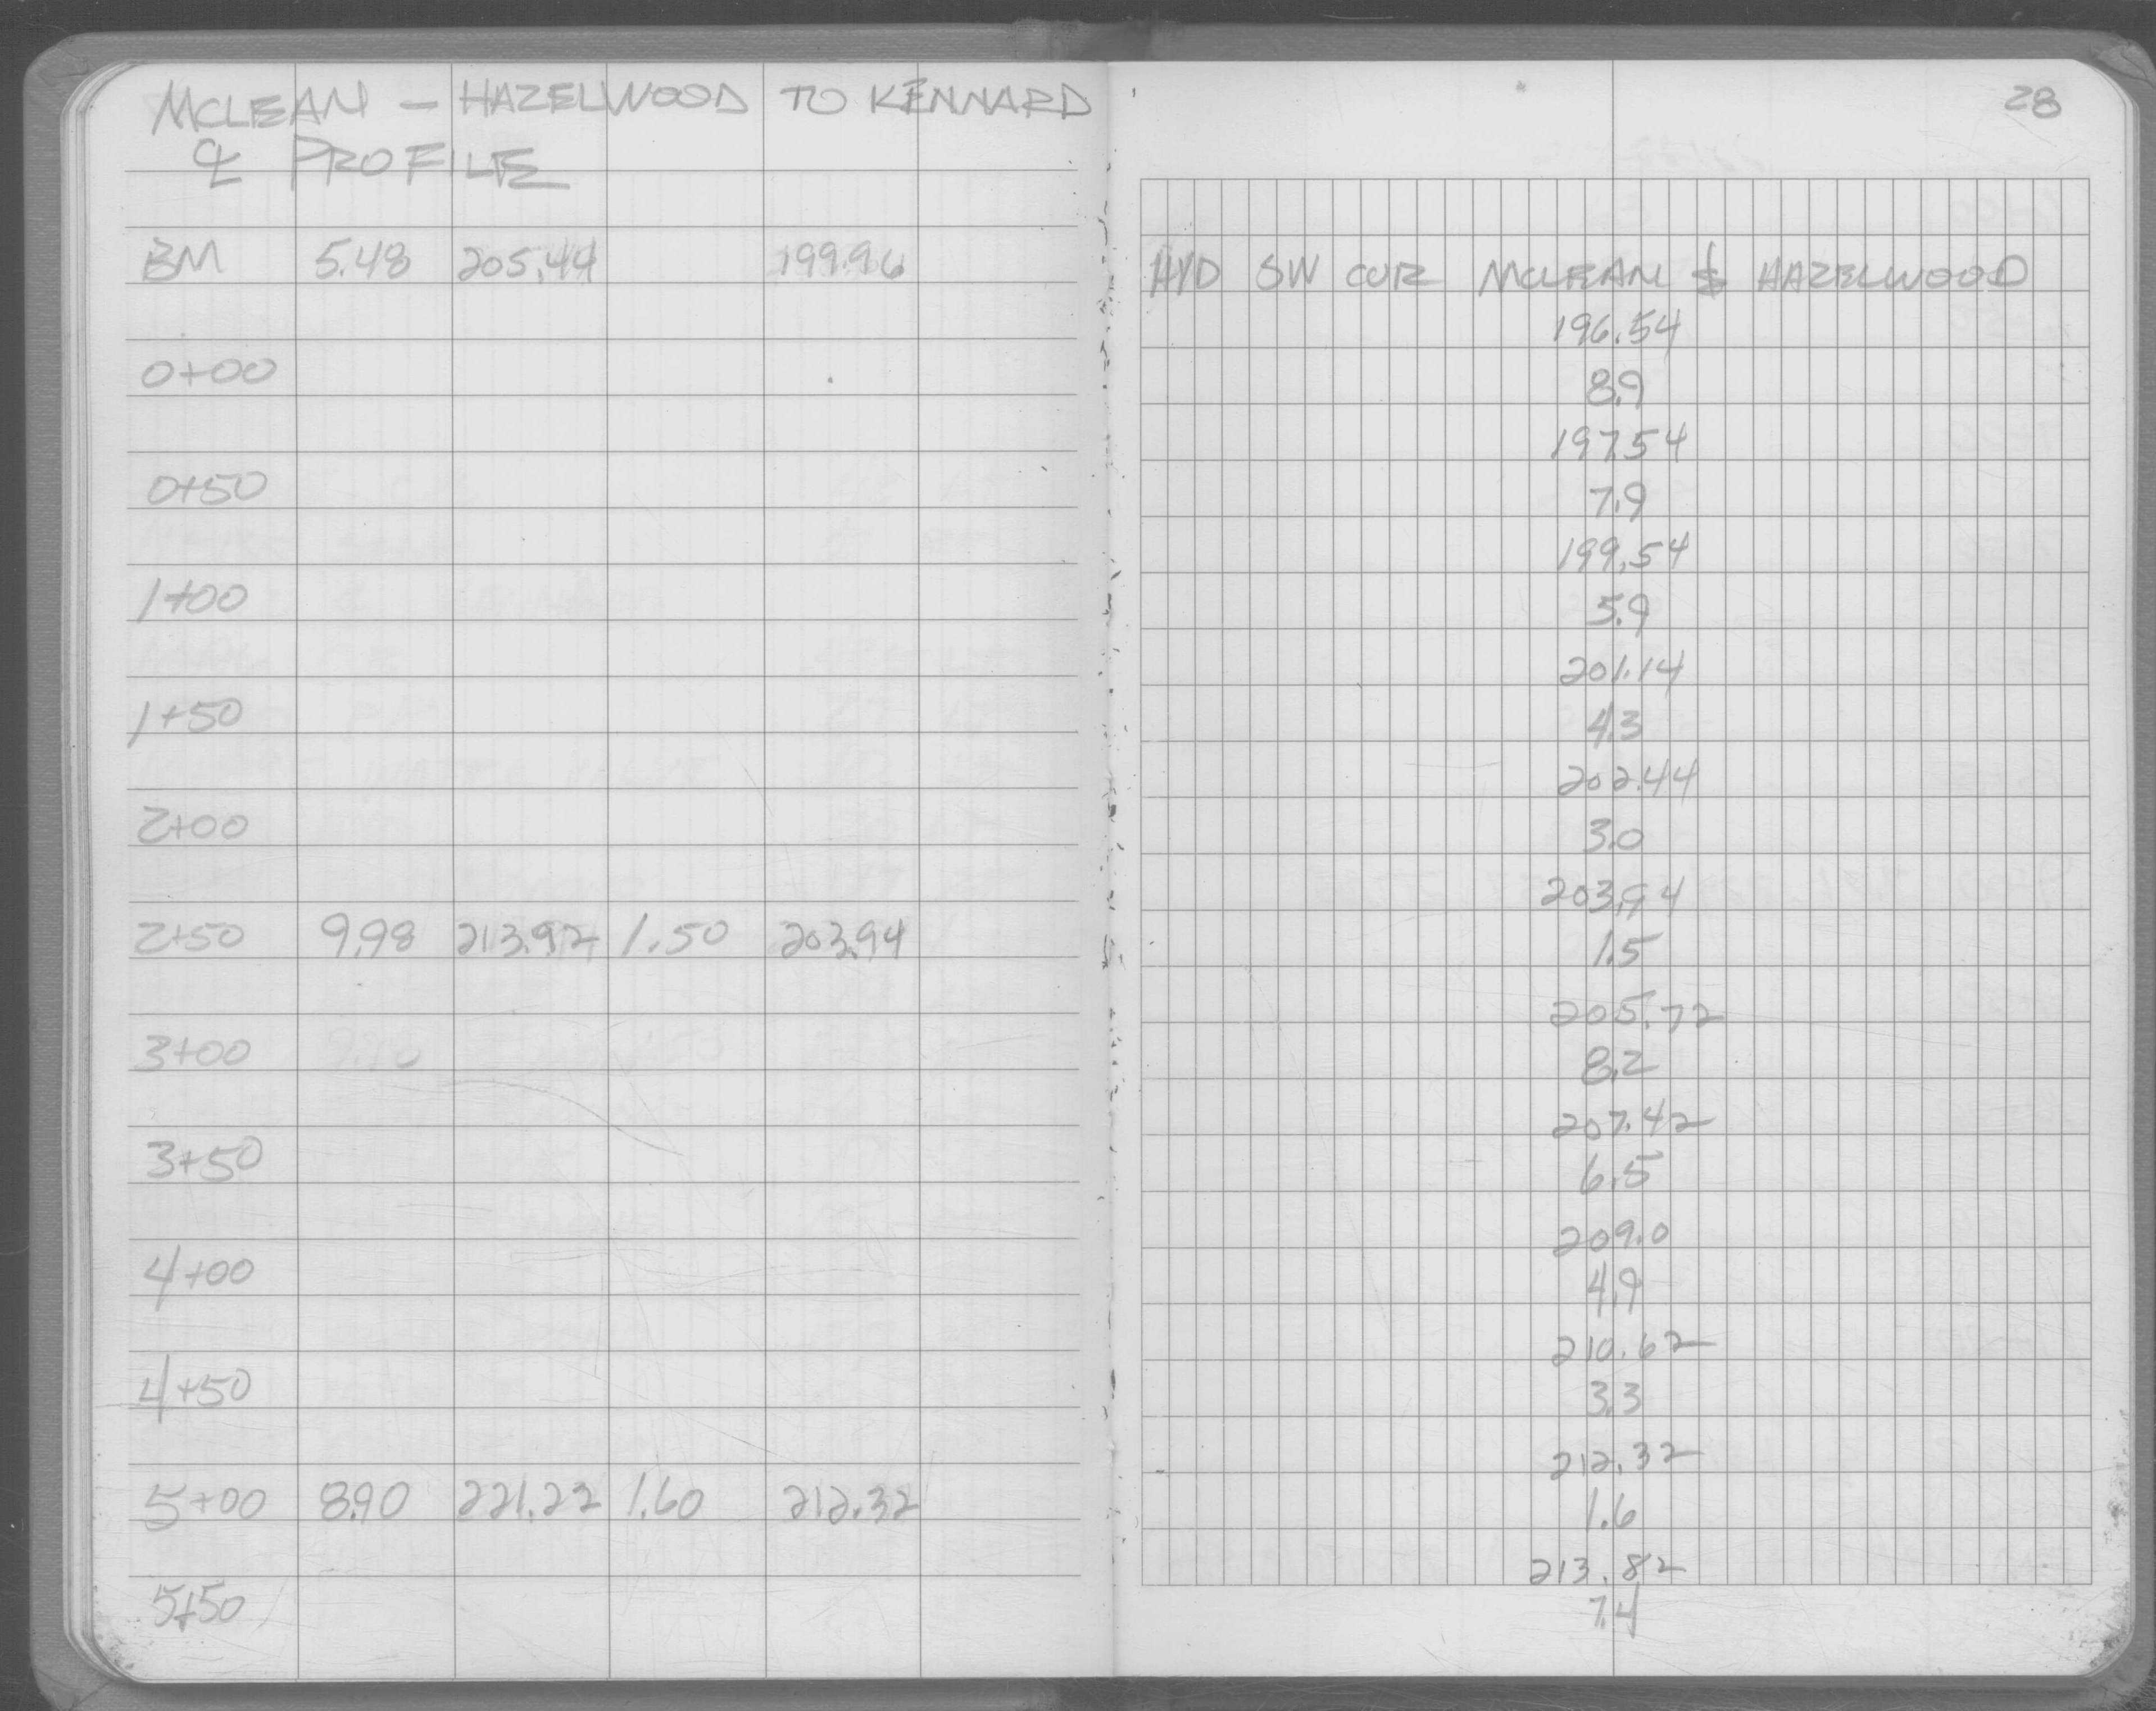 MCLEAN - HAZELWOOD TO KENNARD
℄ PROFILE
28
BM 5.48 205.44 199.96 HYD SW COR MCLEAN & HAZELWOOD
196.54
0+00 8.9
197.54
0+50 7.9
199.54
1+00 5.9
201.14
1+50 4.3
202.44
2+00 3.0
203.94
2+50 9.98 213.92 1.50 203.94 1.5
205.72
3+00 8.2
207.42
3+50 6.5
209.0
4+00 4.9
210.62
4+50 3.3
212.32
5+00 8.90 221.22 1.60 212.32 1.6
213.82
5+50 7.4